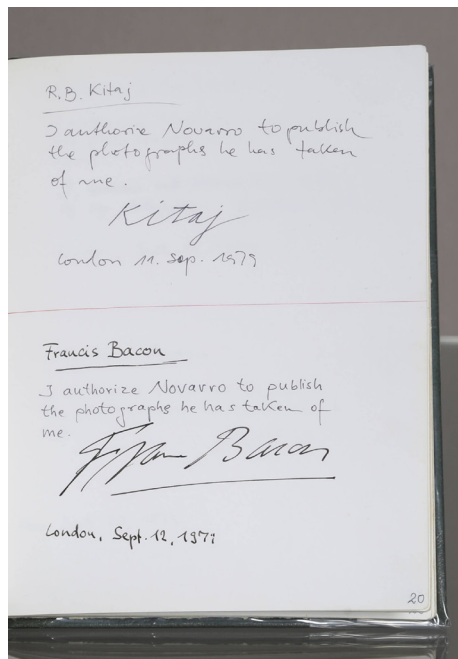 R.B. Kitaj
I authorize Novarro to publish
the photographs he has taken
of me.
Kitaj
London 11. Sep. 1979
Francis Bacon
I authorize Novarro to publish
the photographs he has taken of
me.
Francis Bacon
London, Sept. 12, 1979
20